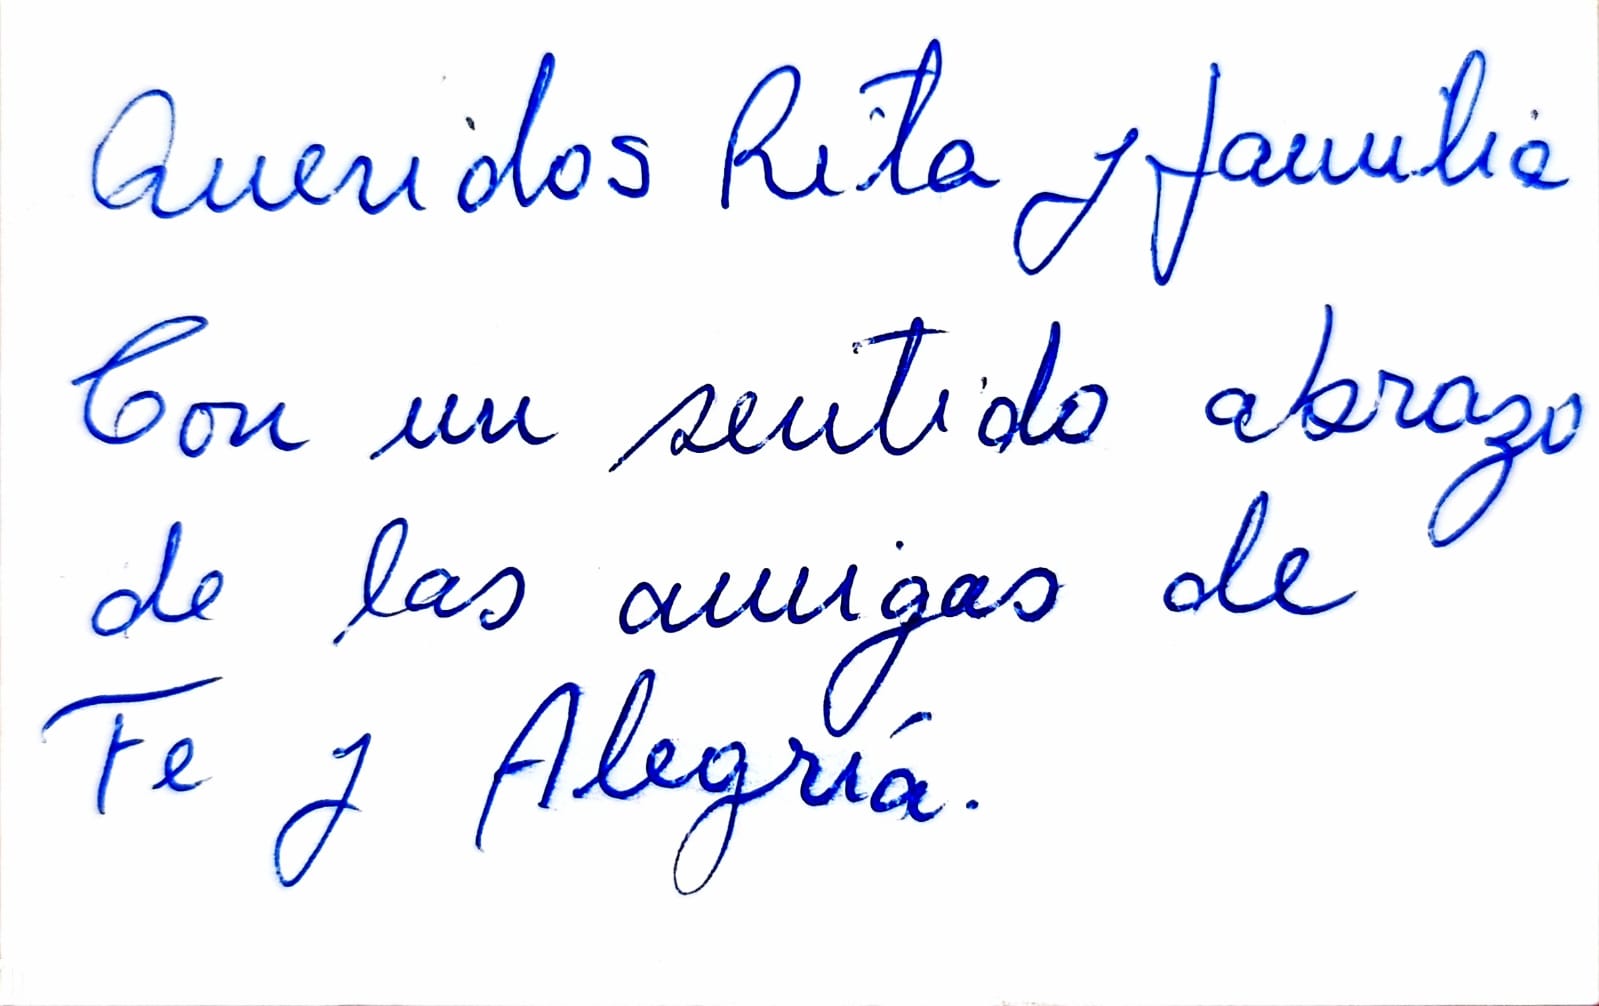 Queridos Rita y familia
Con un sentido abrazo
de las amigas de
Fe y Alegría.